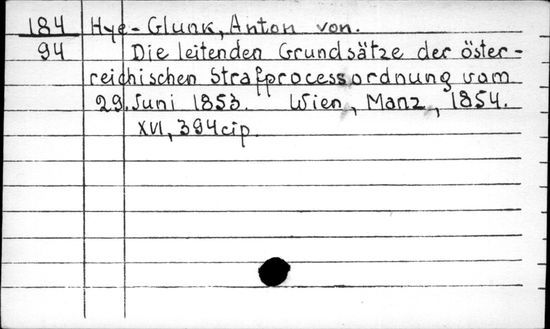 184 Hye-Glunk, Anton von.
94 Die leitenden Grundsätze der öster-
reichischen Strafprocessordnung vom
29. Juni 1853. Wien, Manz, 1854.
XVI, 394 cip.